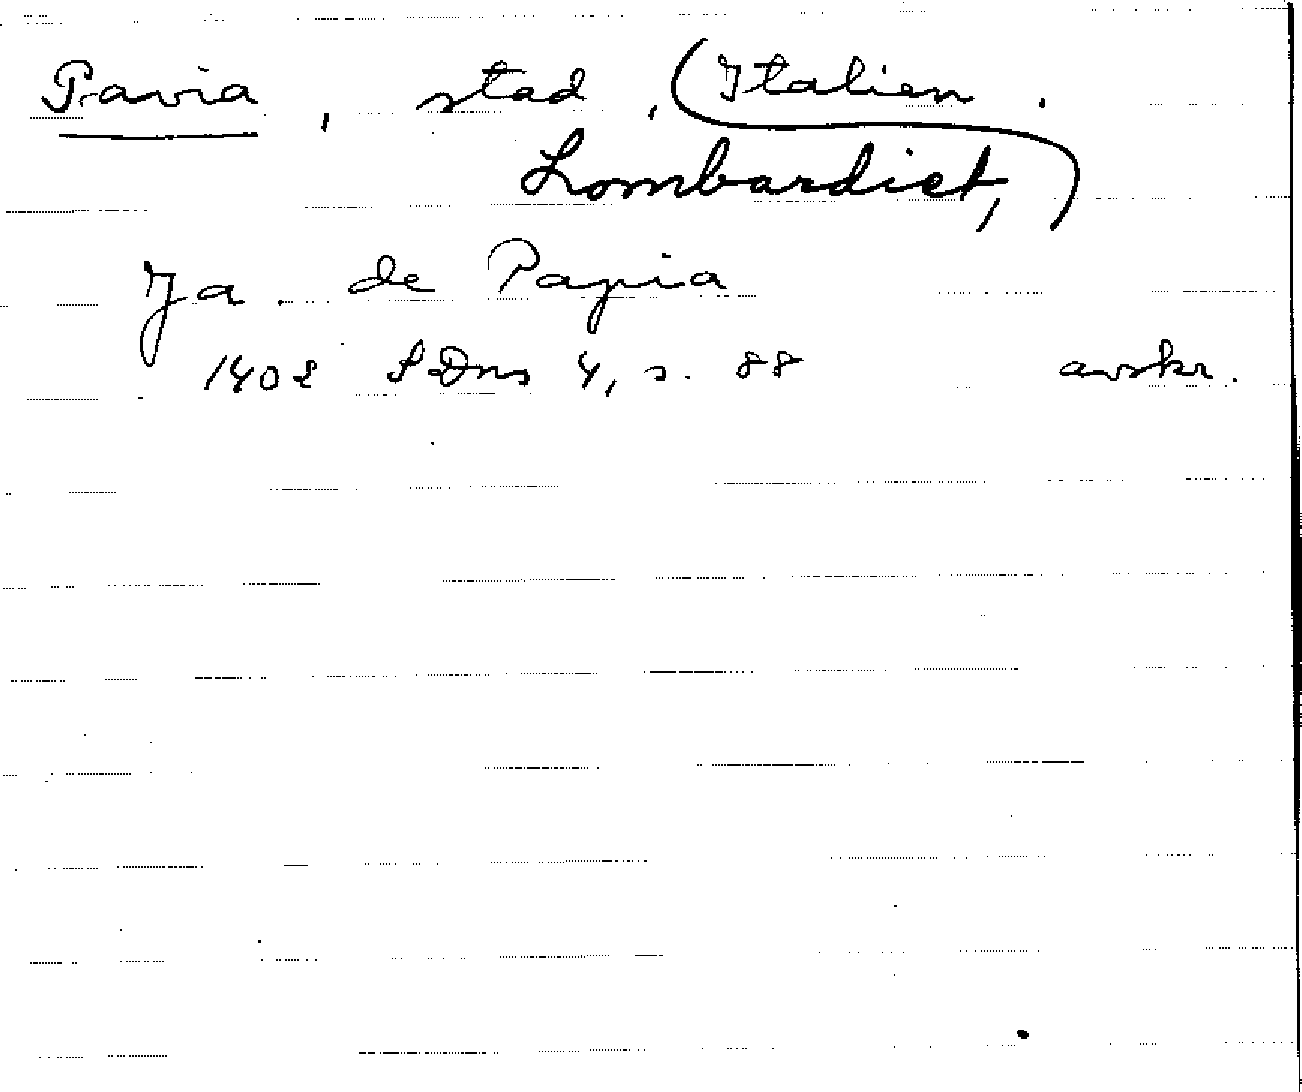 Pavia, stad, (Italien.
Lombardiet,)
Ja. de Papia
1402 SDns 4, s. 88 avskr.